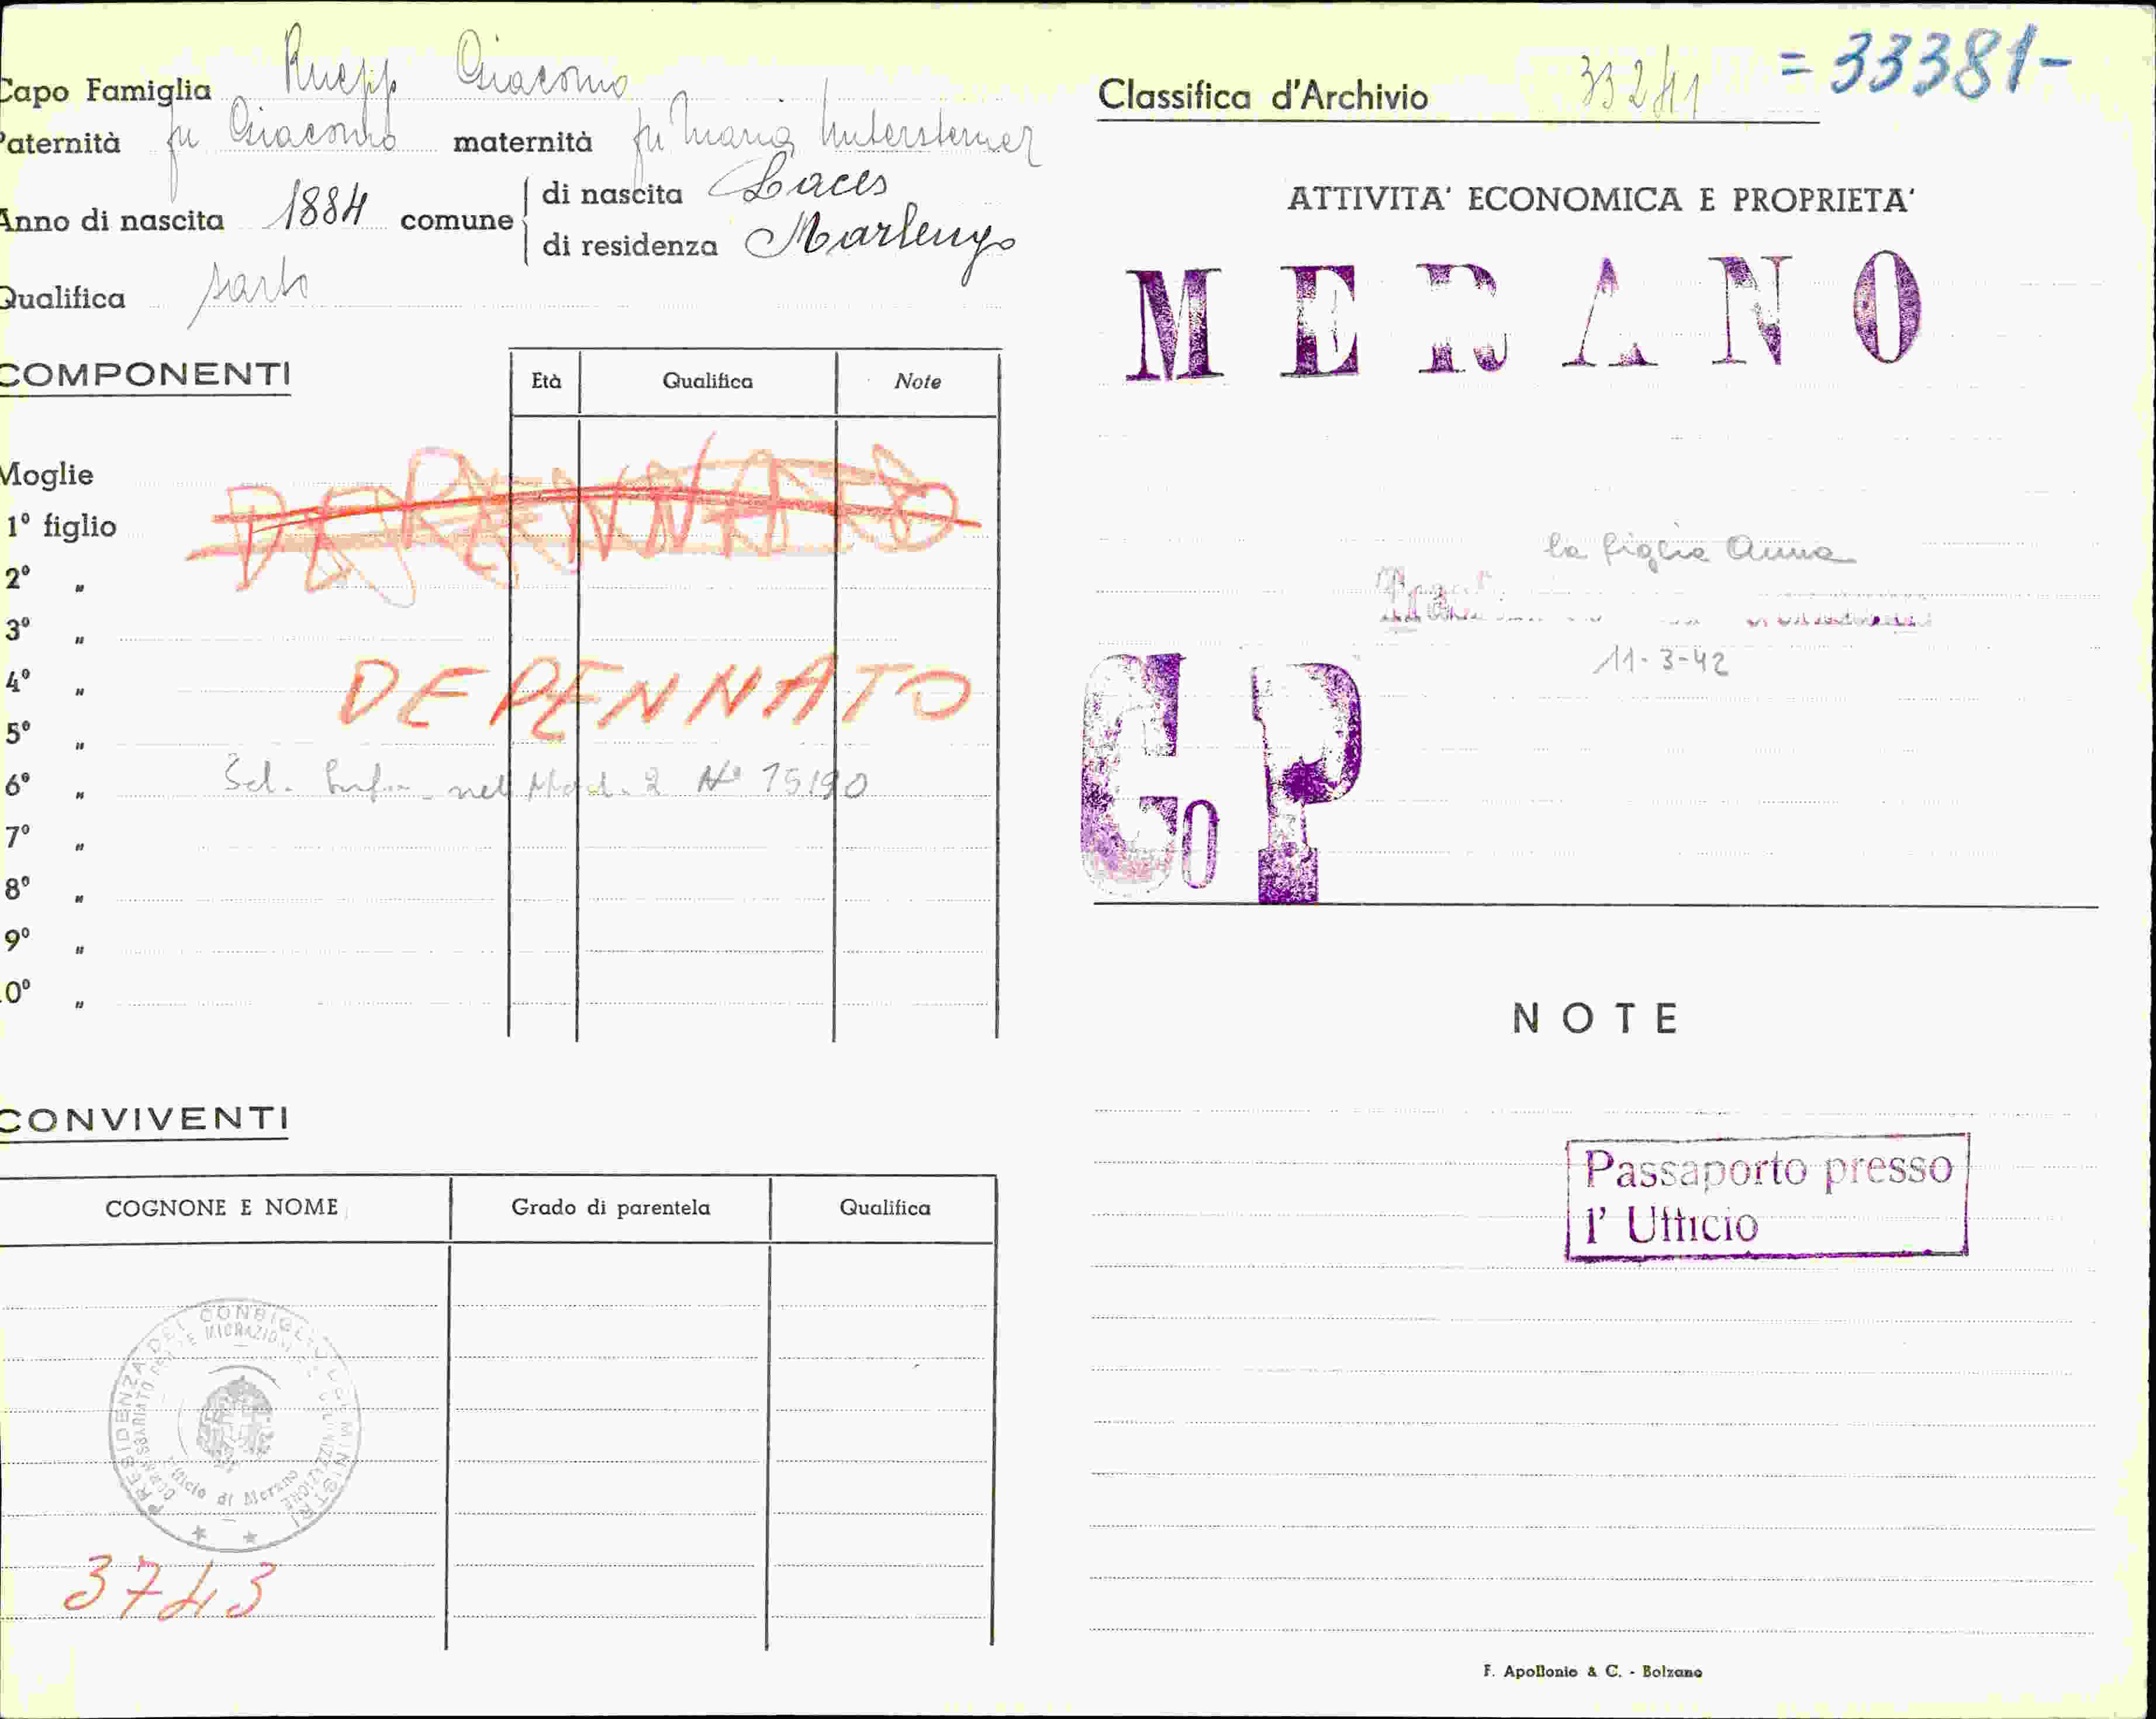 Capo Famiglia Ruepp Giacomo
Paternità fu Giacomo maternità fu Maria Untersteiner
Anno di nascita 1884 comune
di nascita Laces
di residenza Marlengo
Qualifica sarto
COMPONENTI
Età Qualifica Note
Moglie
DEPENNATO
1º figlio
2º "
3º "
4º " DEPENNATO
5º "
6º " nel Mod. 2 Nº 15190
7º "
8º "
9º "
10º "
CONVIVENTI
COGNONE E NOME Grado di parentela Qualifica
PRESIDENZA DEL CONSIGLIO DEI MINISTRI
COMMISSARIATO PER LE MIGRAZIONI E COLONIZZAZIONE
Ufficio di Merano
3743
Classifica d'Archivio 332/41 = 33381-
ATTIVITA' ECONOMICA E PROPRIETA'
MERANO
la figlia Anna
11-3-42
Go P
NOTE
Passaporto presso
l' Ufficio
F. Apollonio & C. - Bolzano